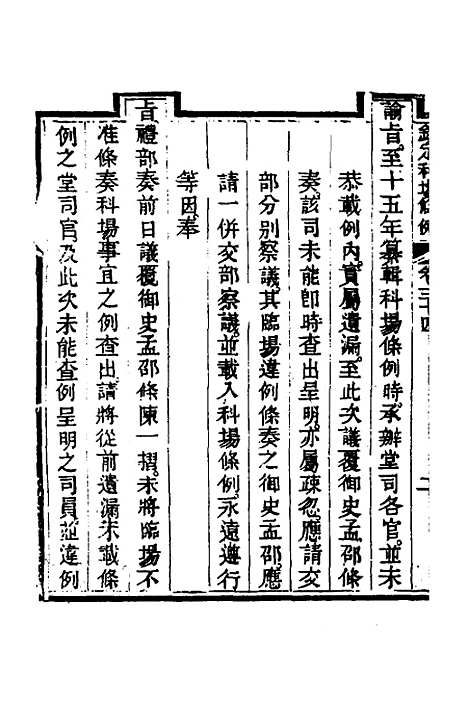 欽定科場條例 卷三十四 二
諭旨至十五年纂輯科場條例時承辦堂司各官並未
恭載例內實屬遺漏至此次議覆御史孟邵條
奏該司未能即時查出呈明亦屬疎忽應請交
部分別察議其臨場違例條奏之御史孟邵應
請一併交部察議並載入科場條例永遠遵行
等因奉
旨禮部奏前日議覆御史孟邵條陳一摺未將臨場不
准條奏科場事宜之例查出請將從前遺漏未載條
例之堂司官及此次未能查例呈明之司員並違例